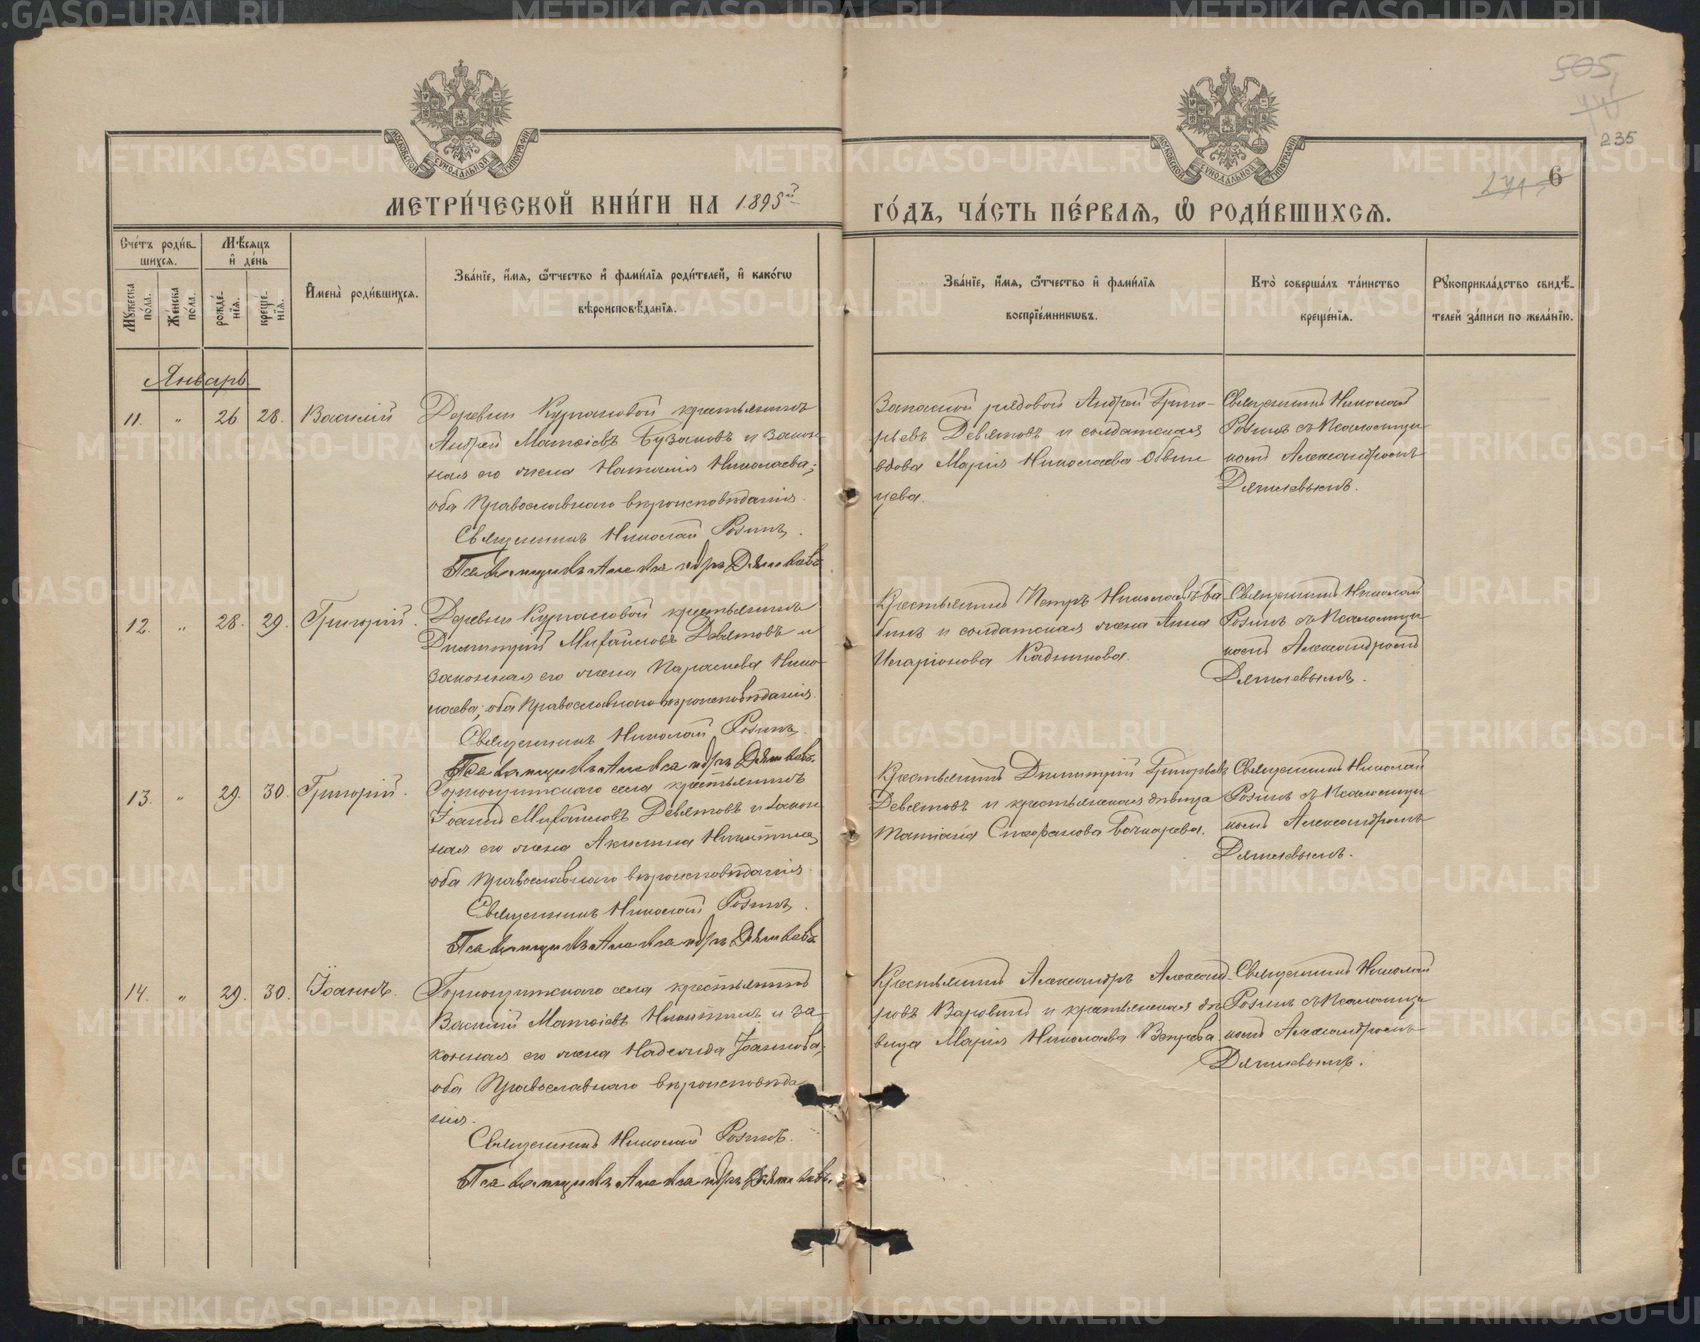 МОСКОВСКОЙ СУНОДАЛЬНОЙ ТИПОГРАФІИ
МОСКОВСКОЙ СУНОДАЛЬНОЙ ТИПОГРАФІИ
505
235
6
МЕТРИ́ЧЕСКОЙ КНИ́ГИ НА 1895й
ГО́ДЪ, ЧА́СТЬ ПЕ́РВАѦ, Ѡ РОДИ́ВШИХСѦ.
Сче́тъ роди́в-
шихсѧ.
Мѣ́сѧцъ
и҆ де́нь
Мꙋ́жеска по́ла.
Же́нска по́ла.
рожде́-
нїѧ.
креще́-
нїѧ.
И҆мена̀ роди́вшихсѧ.
Зва́нїе, и҆́мѧ, ѻ҆́тчество и҆ фами́лїѧ роди́телей, и҆ како́гѡ
вѣроисповѣ́данїѧ.
Зва́нїе, и҆́мѧ, ѻ҆́тчество и҆ фами́лїѧ
воспрїе́мникѡвъ.
Кто̀ соверша́лъ та́инство
креще́нїѧ.
Рꙋкоприкла́дство свидѣ́-
телей за́писи по жела́нїю.
Январь
11. " 26 28. Василій
Деревни Курмановой крестьянинъ
Андрей Матѳіевъ Бузановъ и закон-
ная его жена Наталія Николаева;
оба Православнаго вѣроисповѣданія.
Священникъ Николай Розинъ.
Псаломщикъ Александръ
Запасной рядовой Андрей Григо-
рьевъ Девятовъ и солдатская
вдова Марія Николаева Обвин
цева.
Священникъ Николай
Розинъ съ Псаломщи-
комъ Александромъ
12. " 28. 29. Григорій.
Деревни Курмановой крестьянинъ
Димитрій Михайловъ Девятовъ и
законная его жена Параскева Нико-
лаева; оба Православнаго вѣроисповѣданія.
Священникъ Николай Розинъ.
Псаломщикъ Александръ
Крестьянинъ Петръ Николаевъ Ба-
бинъ и солдатская жена Анна
Иларіонова Кадникова.
Священникъ Николай
Розинъ съ Псаломщи-
комъ Александромъ
13. " 29. 30. Григорій.
Горнощитскаго села крестьянинъ
Іоаннъ Михайловъ Девятовъ и закон-
ная его жена Акилина Никитина;
оба Православнаго вѣроисповѣданія.
Священникъ Николай Розинъ.
Псаломщикъ Александръ
Крестьянинъ Димитрій Григорьевъ
Девятовъ и крестьянская дѣвица
Татіана Стефанова Бочкарева.
Священникъ Николай
Розинъ съ Псаломщи-
комъ Александромъ
14. " 29. 30. Іоаннъ.
Горнощитскаго села крестьянинъ
Василій Матѳіевъ Никитинъ и за-
конная его жена Надежда Іоаннова;
оба Православнаго вѣроисповѣда-
нія.
Священникъ Николай Розинъ.
Псаломщикъ Александръ
Крестьянинъ Александръ Александ-
ровъ Варовинъ и крестьянская дѣ-
вица Марія Николаева Вепрева.
Священникъ Николай
Розинъ съ Псаломщи-
комъ Александромъ
METRIKI.GASO-URAL.RU